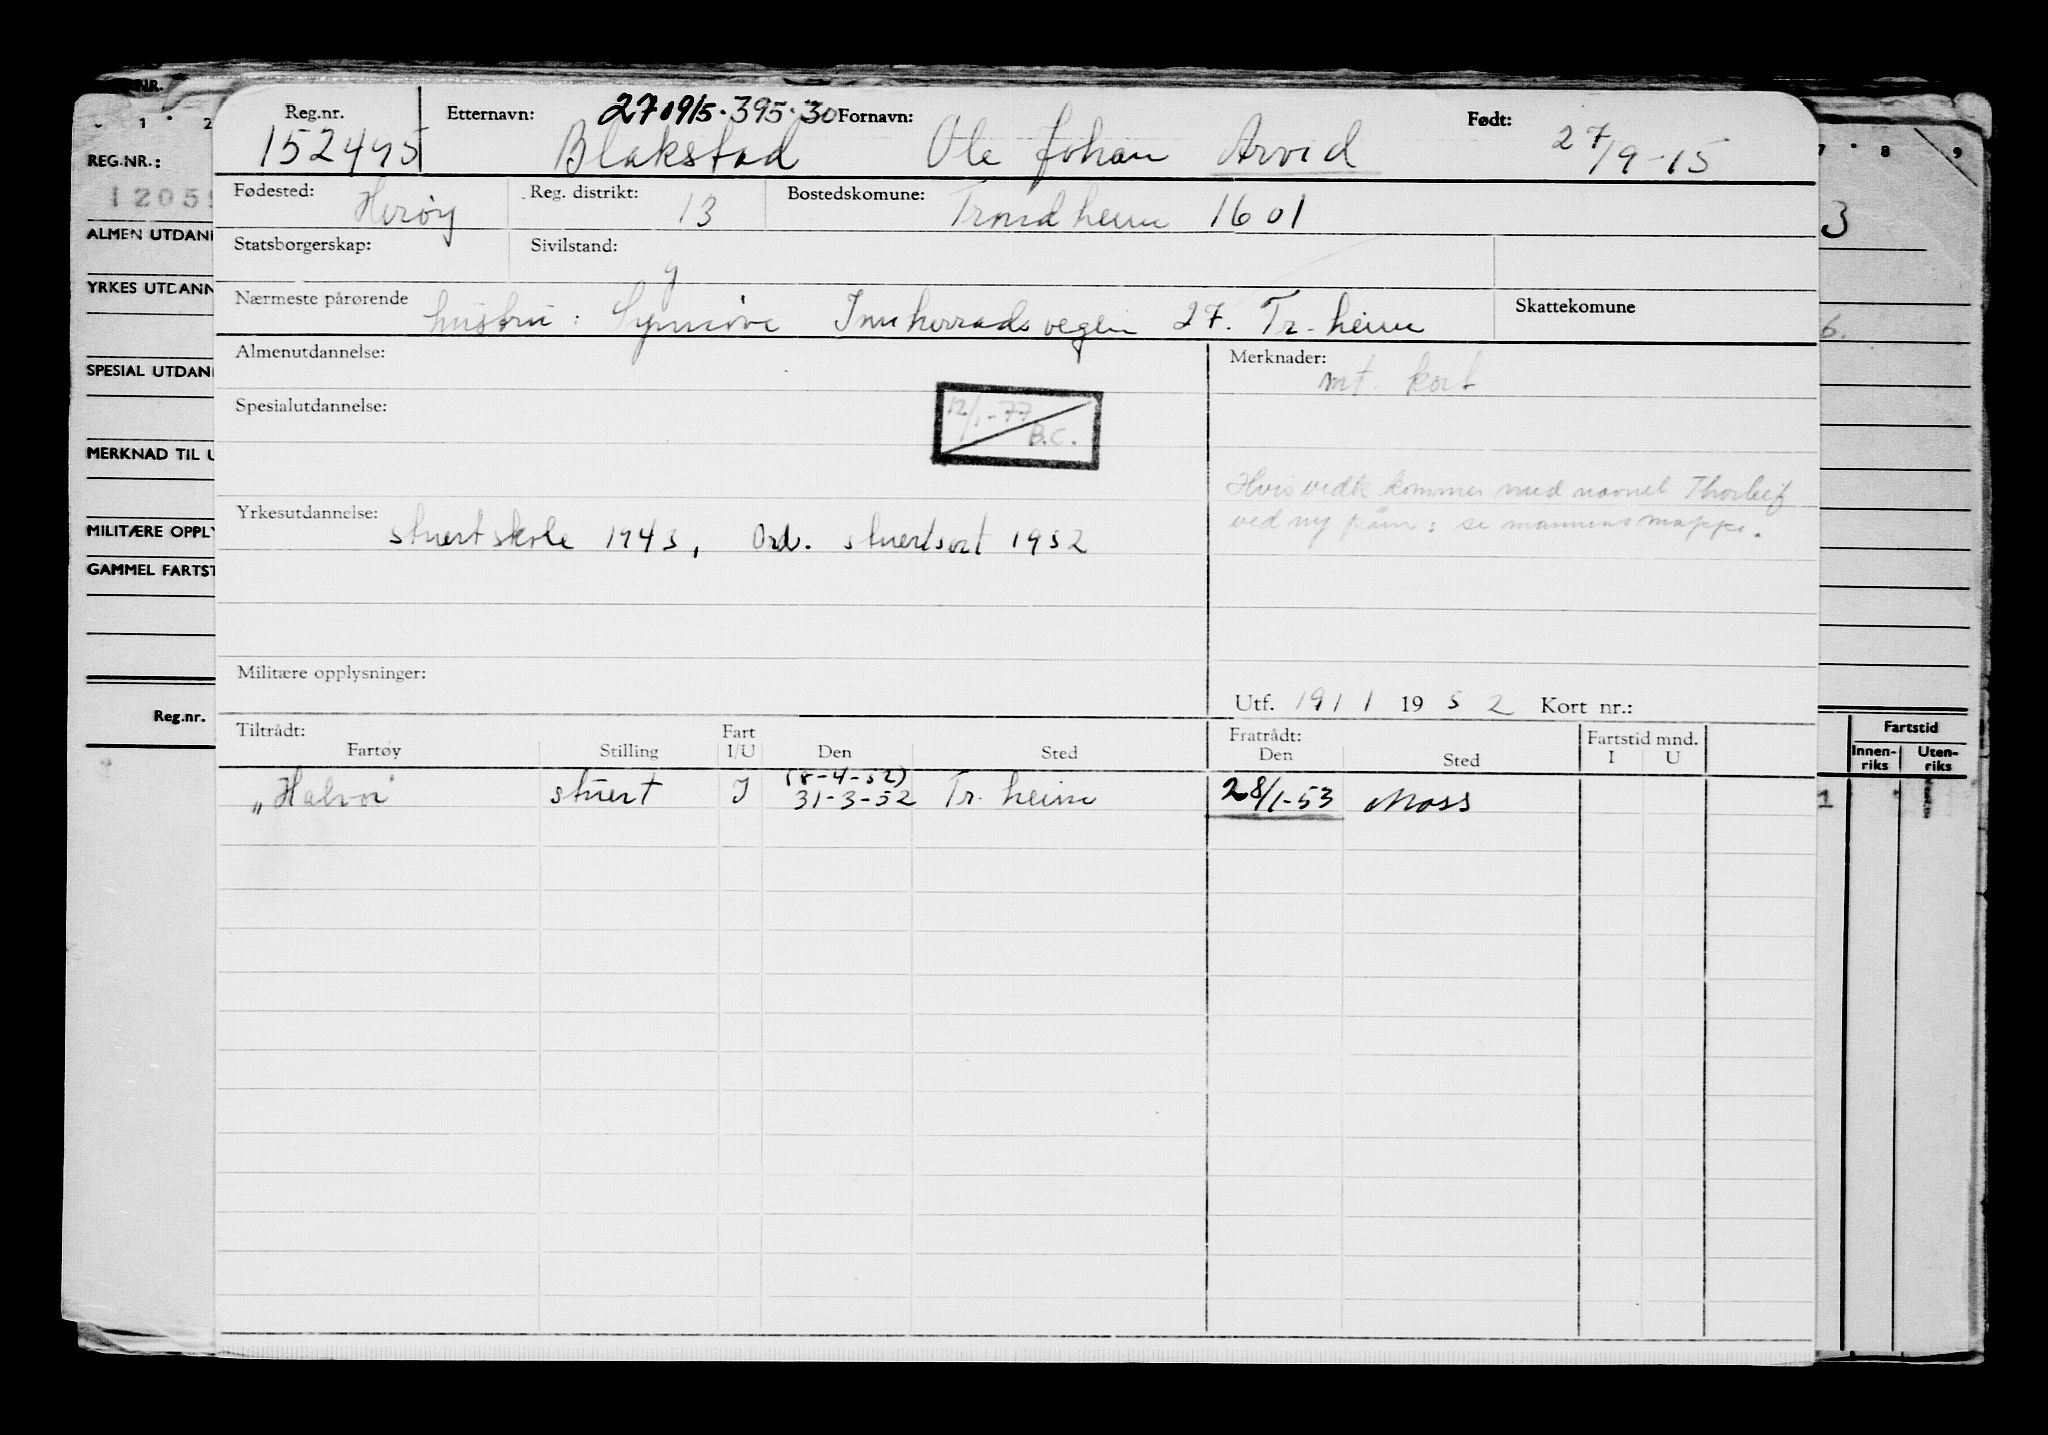 NR.
1 • 2
REG.NR.:
12059
ALMEN UTDANN
YRKES UTDANN
SPESIAL UTDANN
MERKNAD TIL U
MILITÆRE OPPLY
GAMMEL FARTST
Reg.nr.
Reg.nr. Etternavn: 270915·395·30 Fornavn: Født:
152495 Blakstad Ole Johan Arvid 27/9-15
Fødested: Herøy Reg. distrikt: 13 Bostedskomune: Trondheim 1601
Statsborgerskap: Sivilstand: g
Nærmeste pårørende hustru: Synnøve Innherradsvegen 27. Tr.heim Skattekomune
Almenutdannelse: Merknader:
mt. kort
Spesialutdannelse: 12/1-77 B.C.
Hvis vedk kommer med navnet Thorleif
ved ny påm: se mannens mappe.
Yrkesutdannelse: stuertskole 1943, Ord. stuertsert 1952
Militære opplysninger:
Utf. 19/1 1952 Kort nr.:
Tiltrådt: Fart Fratrådt: Fartstid mnd.
Fartøy Stilling I/U Den Sted Den Sted I U
(8-4-52)
"Halvor" stuert I 31-3-52 Tr.heim 28/1-53 Moss
8 9
3
6.
Fartstid
Innen-riks Uten-riks
1